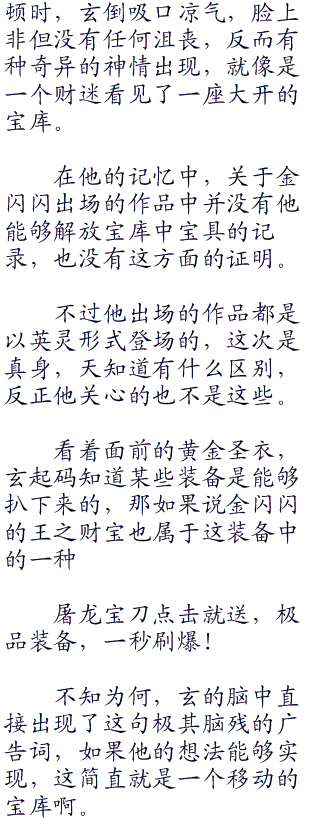 顿时，玄倒吸口凉气，脸上
非但没有任何沮丧，反而有
种奇异的神情出现，就像是
一个财迷看见了一座大开的
宝库。
在他的记忆中，关于金
闪闪出场的作品中并没有他
能够解放宝库中宝具的记
录，也没有这方面的证明。
不过他出场的作品都是
以英灵形式登场的，这次是
真身，天知道有什么区别，
反正他关心的也不是这些。
看着面前的黄金圣衣，
玄起码知道某些装备是能够
扒下来的，那如果说金闪闪
的王之财宝也属于这装备中
的一种
屠龙宝刀点击就送，极
品装备，一秒刷爆！
不知为何，玄的脑中直
接出现了这句极其脑残的广
告词，如果他的想法能够实
现，这简直就是一个移动的
宝库啊。